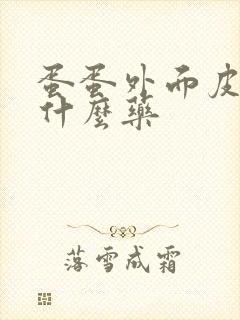 蛋蛋外而皮
什麼藥
落雪成霜